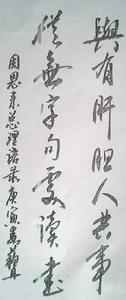 與有肝胆人共事
從無字句處讀書
周恩来总理语录庚寅